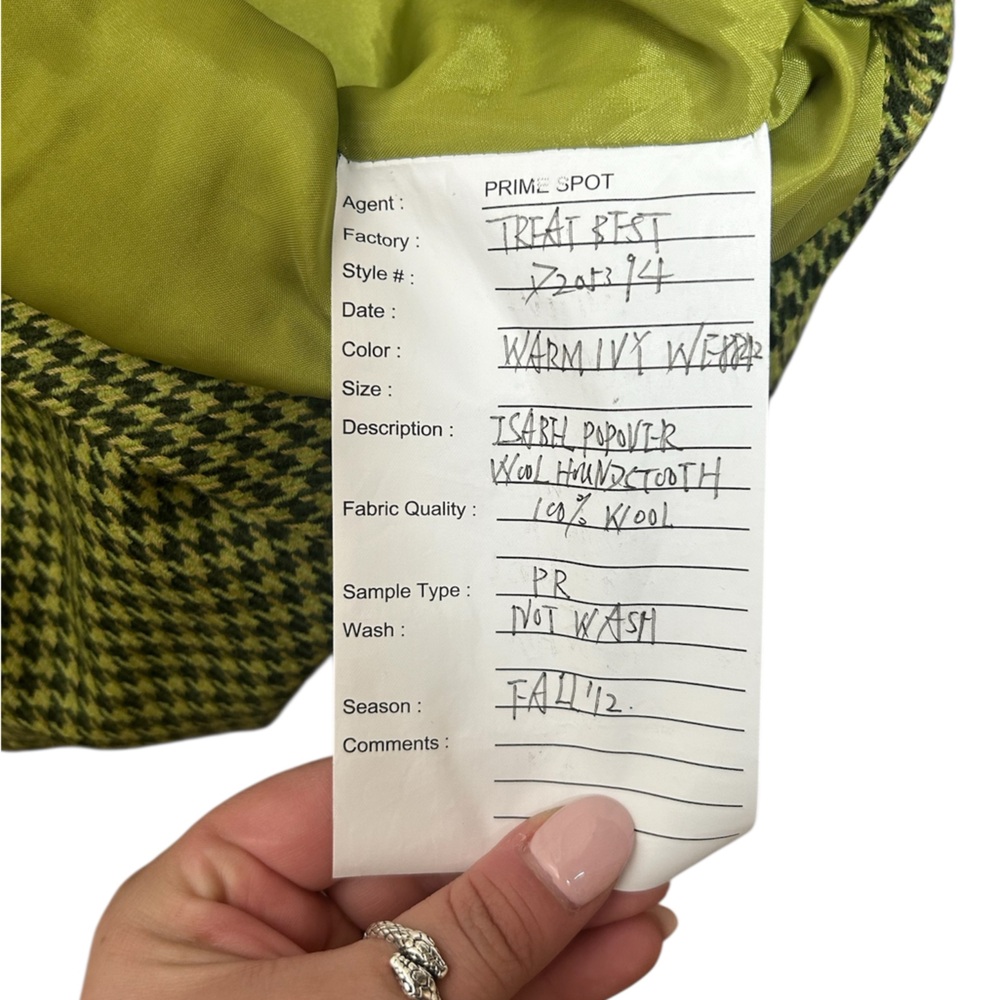 Agent : PRIME SPOT
Factory : TREAT BEST
Style # :
Date :
Color : WARM IVY
Size :
Description : ISABEL POPOVER
WOOL HOUNDSTOOTH
Fabric Quality : 100% WOOL
Sample Type : PR
Wash : NOT WASH
Season : FALL '12.
Comments :